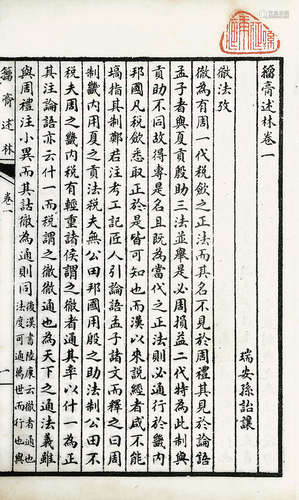 籀廎述林卷一
瑞安孫詒讓
徹法攷
徹為有周一代稅歛之正法而其名不見於周禮其見於論語
孟子者與夏貢殷助三法並舉是必周損益二代特為此制與
貢助不同故得專是名且既為當代之正法則必通行於畿內
邦國凡稅歛悉取正於是皆可知也而漢以來說經者咸不能
塙指其制鄭君注考工記匠人引論語孟子諸文而釋之曰周
制畿內用夏之貢法稅夫無公田邦國用殷之助法制公田不
稅夫周之畿內稅有輕重諸侯謂之徹者通其率以什一為正
其注論語亦云什一而稅謂之徹徹通也為天下之通法義雖
與周禮注小異而其詁徹為通則同後漢書陸康云徹者通也
法度可通萬世而行也與
籀廎述林
卷一
一